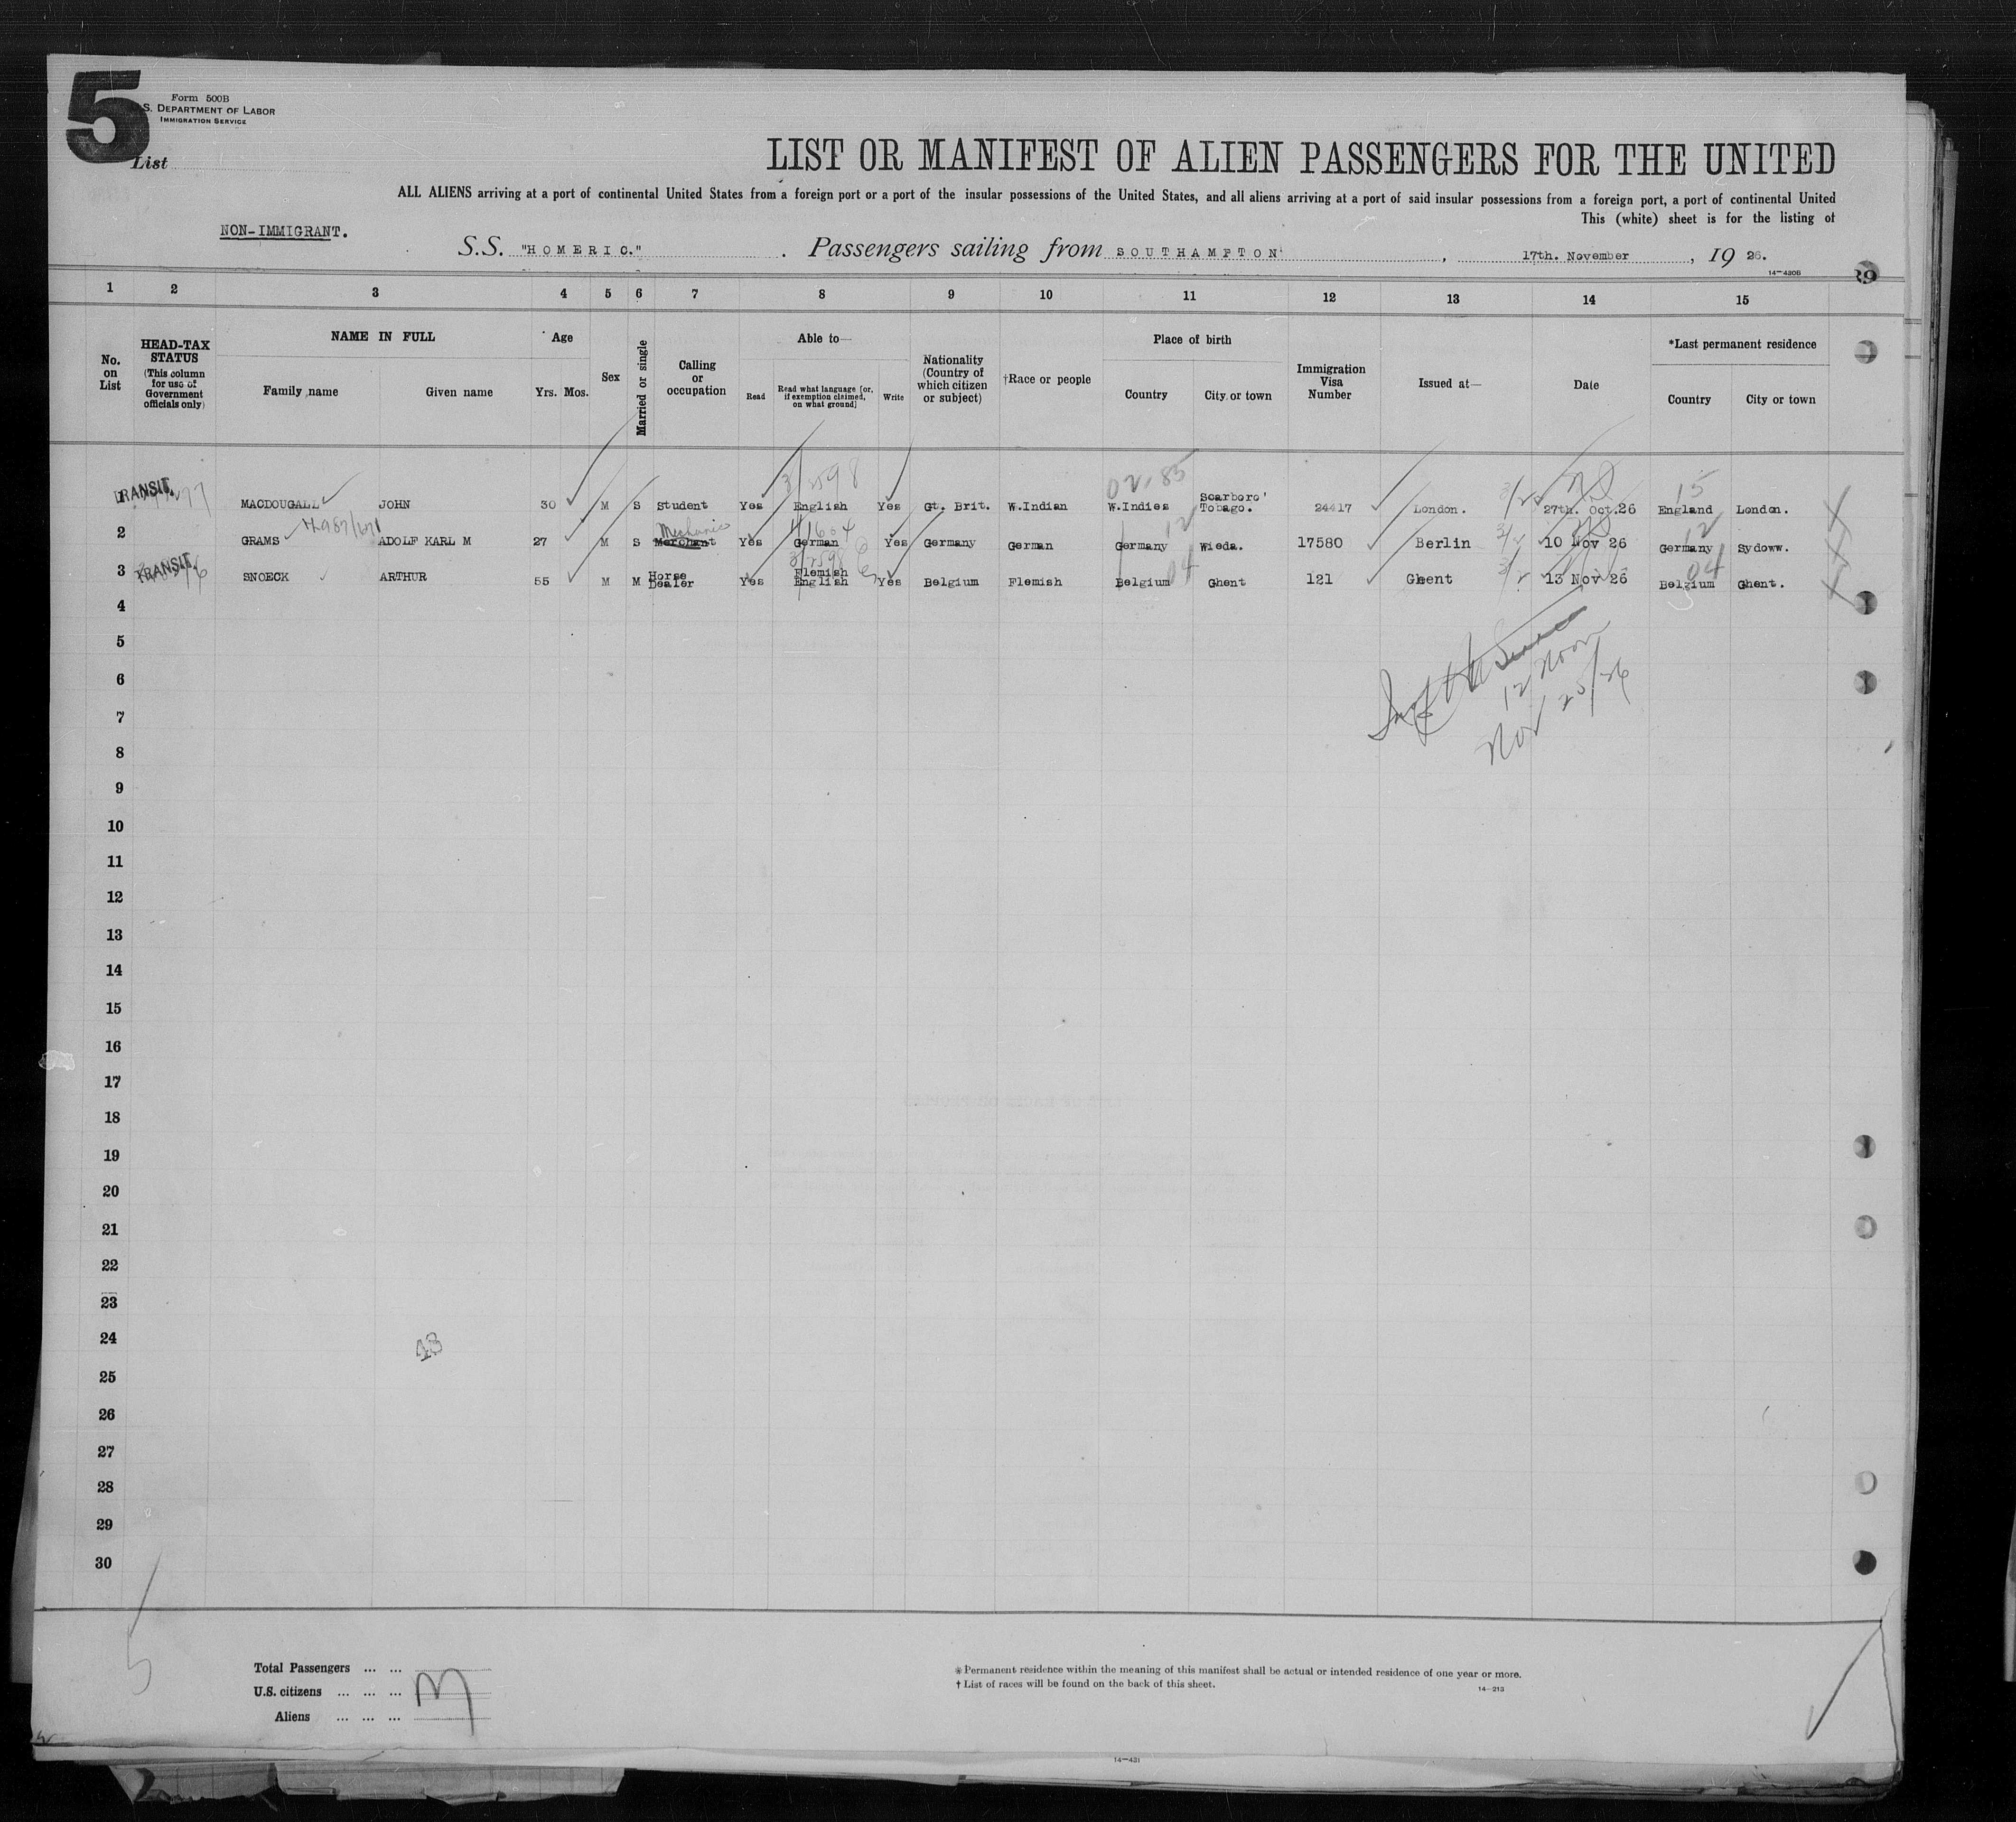 5
Form 500B
S. DEPARTMENT OF LABOR
IMMIGRATION SERVICE
List
LIST OR MANIFEST OF ALIEN PASSENGERS FOR THE UNITED
ALL ALIENS arriving at a port of continental United States from a foreign port or a port of the insular possessions of the United States, and all aliens arriving at a port of said insular possessions from a foreign port, a port of continental United
This (white) sheet is for the listing of
NON-IMMIGRANT.
S.S. "HOMERIC." . Passengers sailing from SOUTHAMPTON , 17th. November , 19 26.
14—430B
1 2 3 4 5 6 7 8 9 10 11 12 13 14 15
No. on List
HEAD-TAX STATUS
(This column for use of Government officials only)
NAME IN FULL
Family name Given name
Age
Yrs. Mos.
Sex
Married or single
Calling or occupation
Able to—
Read
Read what language [or, if exemption claimed, on what ground]
Write
Nationality (Country of which citizen or subject)
†Race or people
Place of birth
Country City or town
Immigration Visa Number
Issued at—
Date
*Last permanent residence
Country City or town
1 TRANSIT. MACDOUGALL JOHN 30 M S Student Yes English Yes Gt. Brit. W.Indian W.Indies Scarboro' Tobago. 24417 London. 27th. Oct.26 England London.
3/2598 02.85 15
2 GRAMS ADOLF KARL M 27 M S Merchant Mechanic Yes German Yes Germany German Germany Wieda. 17580 Berlin 10 Nov 26 Germany Sydoww.
12 12
3 TRANSIT. SNOECK ARTHUR 55 M M Horse Dealer Yes Flemish English Yes Belgium Flemish Belgium Ghent 121 Ghent 13 Nov 26 Belgium Ghent.
04 04
4
5
12 Noon
6
Nov 25/26
7
8
9
10
11
12
13
14
15
16
17
18
19
20
21
22
23
24
48
25
26
27
28
29
30
Total Passengers ... ...
U.S. citizens ... ... ...
Aliens ... ... ...
* Permanent residence within the meaning of this manifest shall be actual or intended residence of one year or more.
† List of races will be found on the back of this sheet.
14—213
14—431